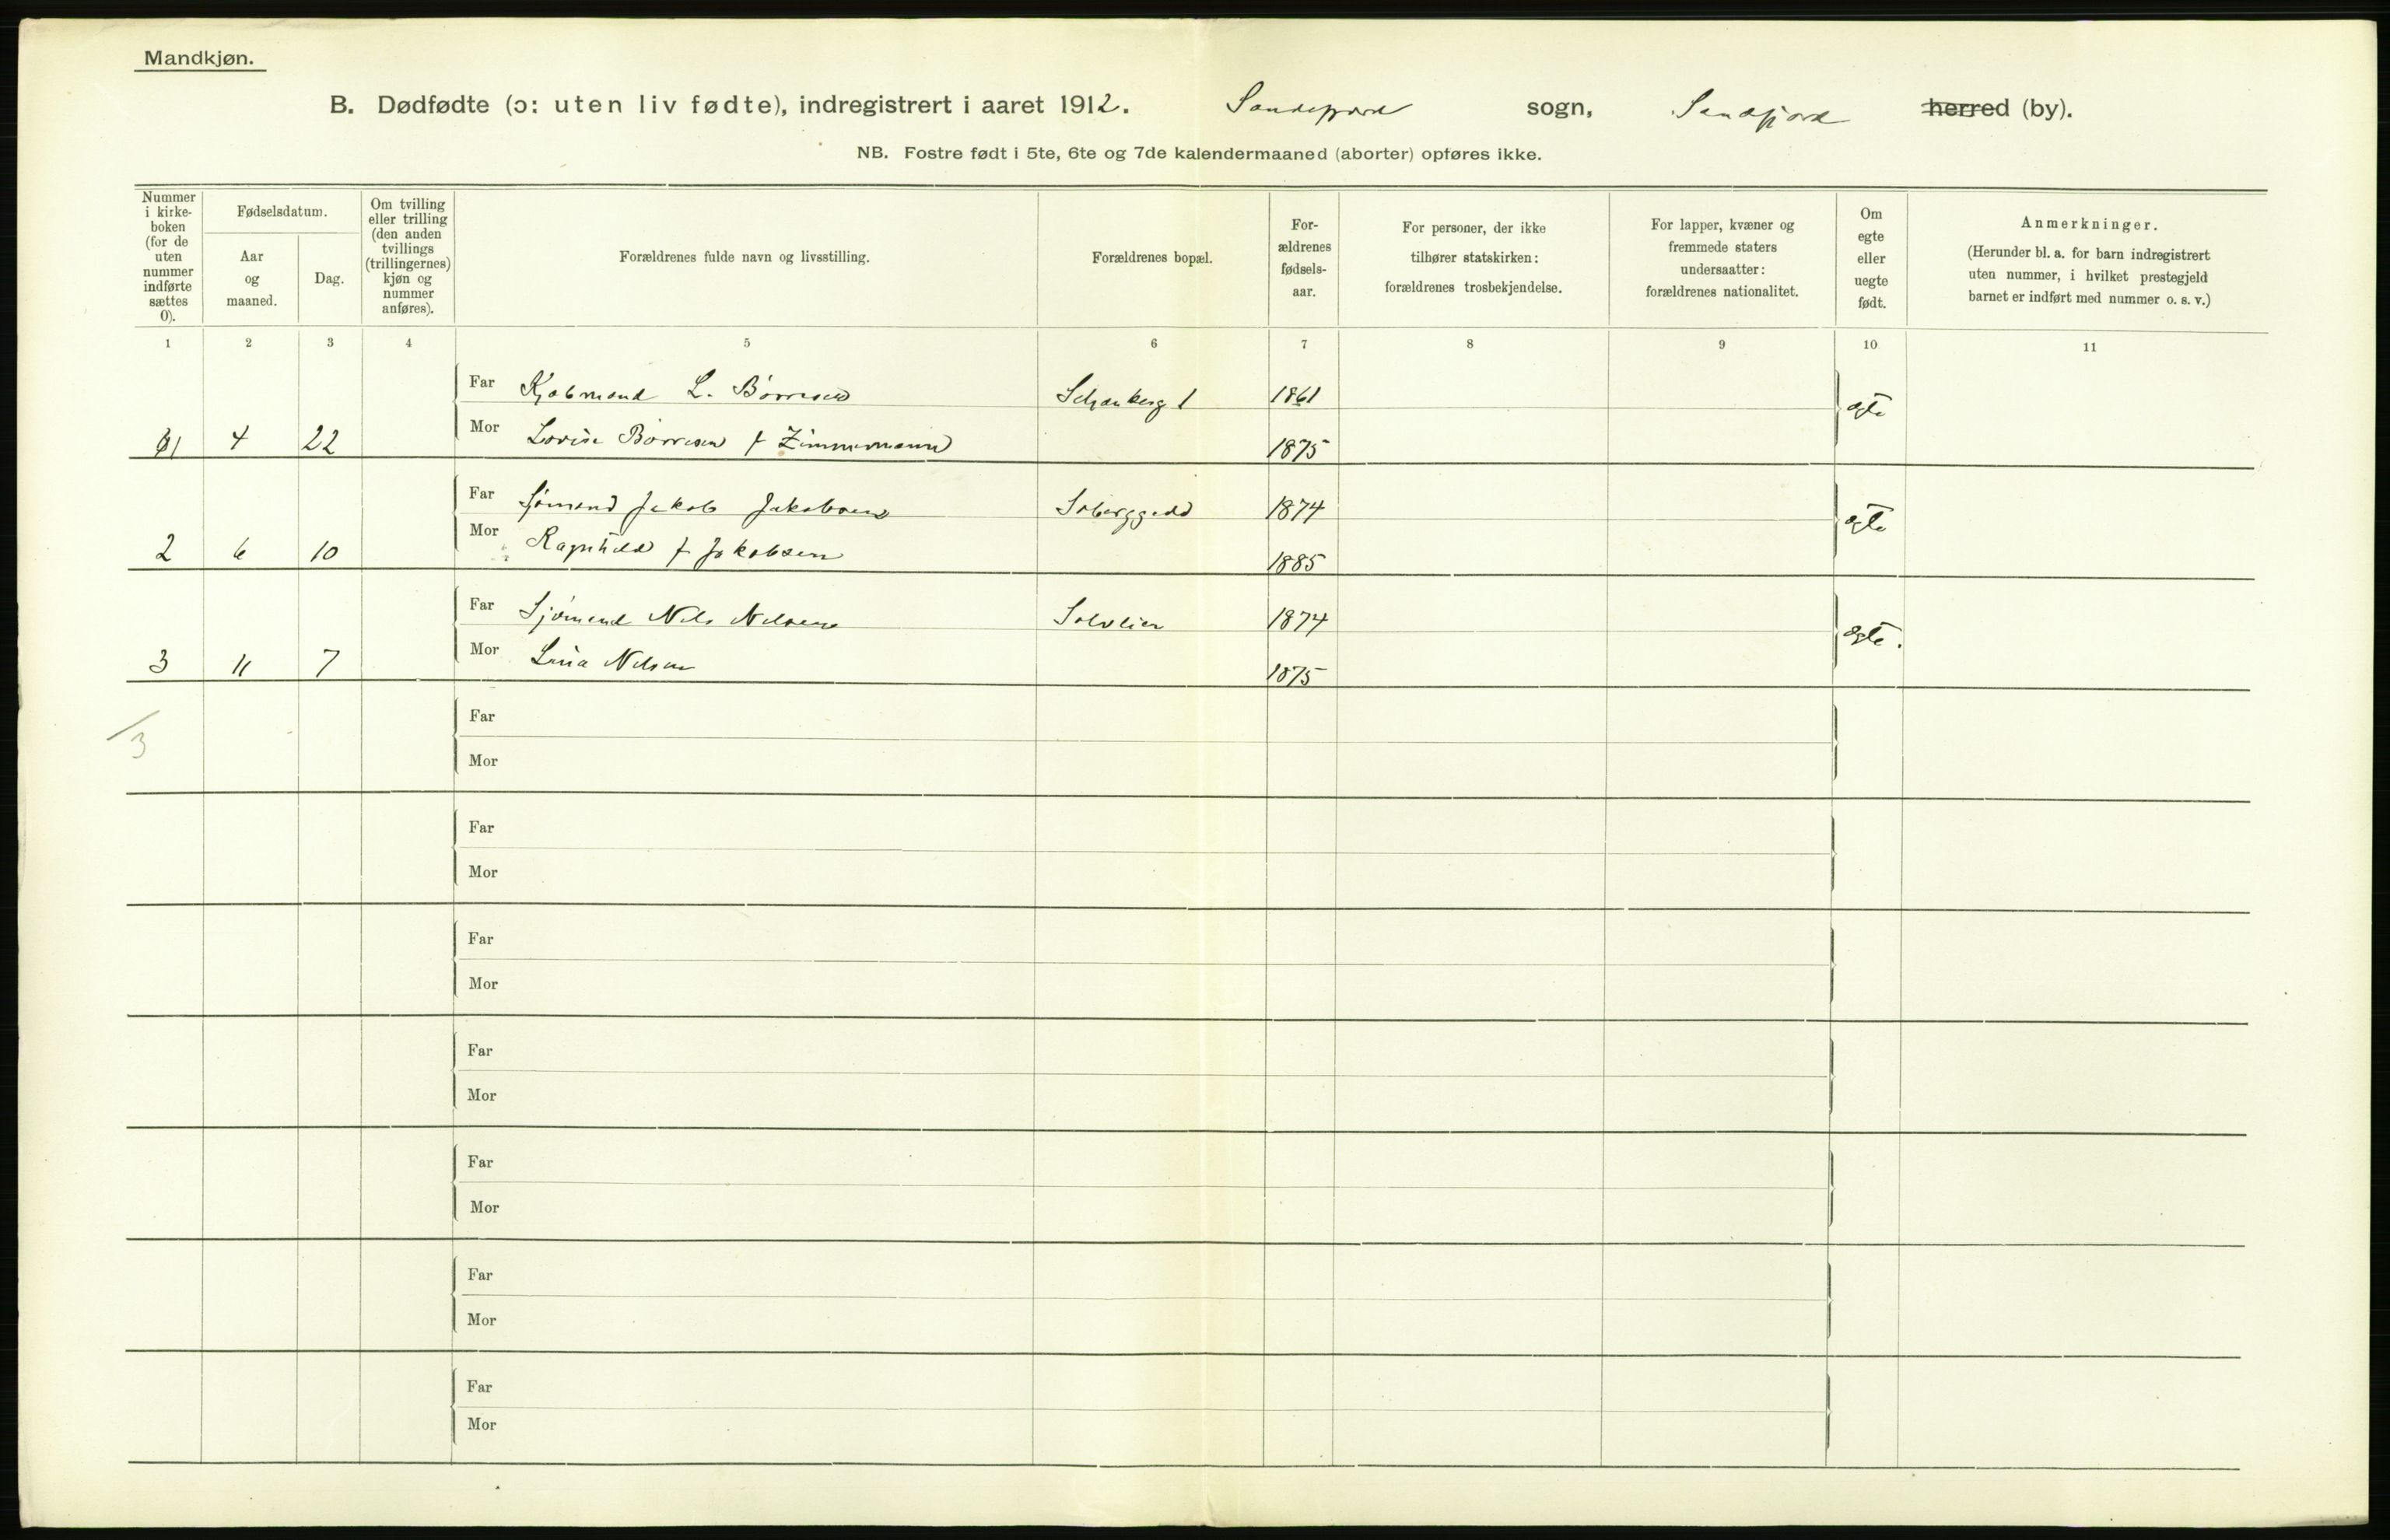 Mandkjøn.
B. Dødfødte (ɔ: uten liv fødte), indregistrert i aaret 1912. Sandefjord sogn, Sandefjord herred (by).
NB. Fostre født i 5te, 6te og 7de kalendermaaned (aborter) opføres ikke.
Nummer i kirke- boken (for de uten nummer indførte sættes 0).
Fødselsdatum.
Aar og maaned.
Dag.
Om tvilling eller trilling (den anden tvillings (trillingernes) kjøn og nummer anføres).
Forældrenes fulde navn og livsstilling.
Forældrenes bopæl.
For- ældrenes fødsels- aar.
For personer, der ikke tilhører statskirken: forældrenes trosbekjendelse.
For lapper, kvæner og fremmede staters undersaatter: forældrenes nationalitet.
Om egte eller uegte født.
Anmerkninger.
(Herunder bl. a. for barn indregistrert uten nummer, i hvilket prestegjeld barnet er indført med nummer o. s. v.)
1 2 3 4 5 6 7 8 9 10 11
Far Kjøbmand L. Børresen 1861 egte
1 4 22 Mor Lovise Børresen f Zimmermann 1875
Far Sjømand Jakob Jakobsen 1874 egte
2 6 10 Mor Ragnhild f Jakobsen 1885
Far Sjømand Nils Nilsen Solvlien 1874 egte.
3 11 7 Mor Lina Nilsen 1875
3
Far
Mor
Far
Mor
Far
Mor
Far
Mor
Far
Mor
Far
Mor
Far
Mor